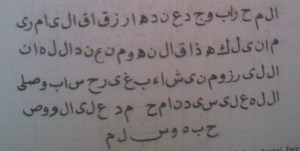 ال م ح راب وج د ع ن د ه ا ر ز ق ا ق ال ي ا م ر ي
م ان ي ل ك ه ذ ا ق ال ن ه و م ن ع ن د ال ل ه ان
ال ل ي ر ز و م ن ي ش اء ب غ ي ر ح س اب و صلى
ال ل ه ع ل ي س ي د ن ا م ح م د ع ل ي ال و و ص
ح ب ه و س ل م